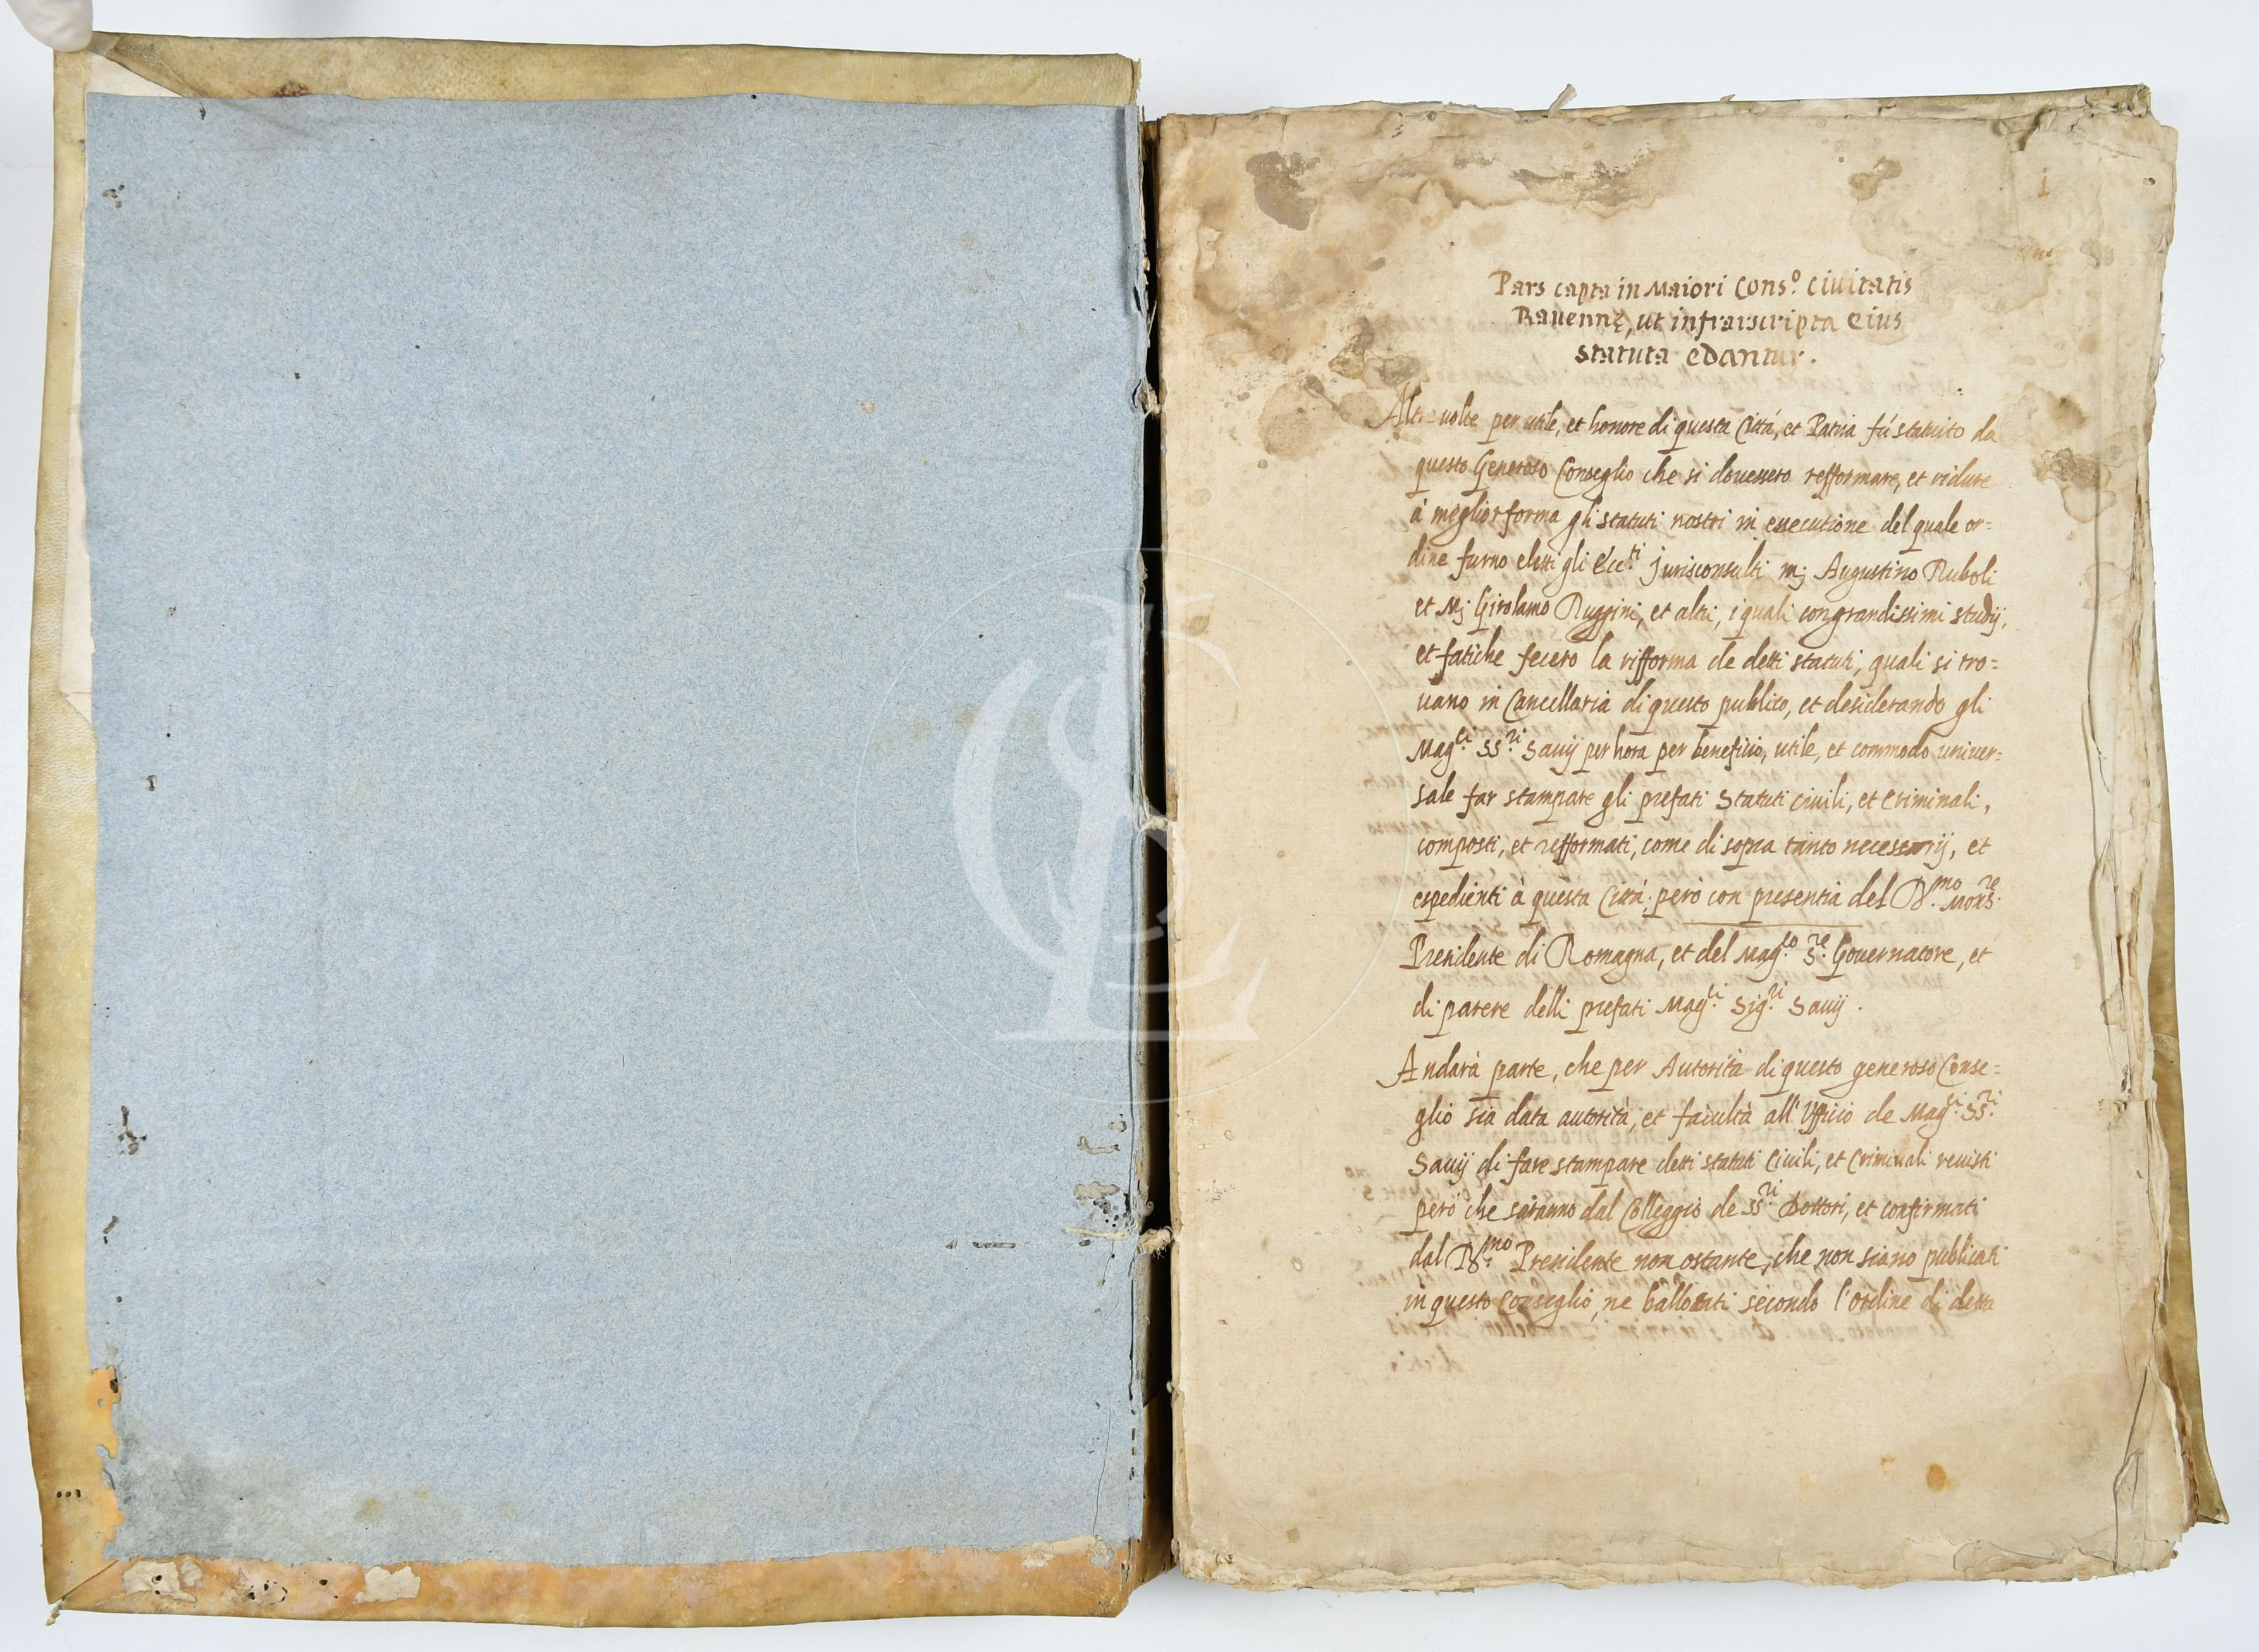 1
Pars capta in Maiori Cons.º Ciuitatis
Rauennę, ut infrarscripta eius
statuta edantur.
Altre uolte per utile, et honore di questa Città, et Patria fú statuito da
questo Generoso Conseglio che si douessero refformare, et ridure
à meglior forma gli statuti nostri in essecutione del quale or=
dine furno eletti gli Ecc.ti Jurisconsulti mj Augustino Ruboli
et Mj Girolamo Ruggini, et altri, i quali con grandissimi studij,
et fatiche fecero la rifforma de detti statuti, quali si tro=
uano in Cancellaria di questo publico, et desiderando gli
Mag.ci SS.ri Sauij per hora per beneficio, utile, et commodo uniuer=
sale far stampare gli prefati Statuti ciuili, et Criminali,
composti, et refformati, come di sopra tanto necessarij, et
espedienti à questa Città però con presentia del R.mo Mons.re
Presidente di Romagna, et del Mag.co S.re Gouernatore, et
di parere delli prefati Mag.ci Sig.ri Sauij.
Andarà parte, che per Autorità di questo generoso Conse=
glio sia data autorità, et facultà all' Ufficio de Mag.ci SS.ri
Sauij di fare stampare detti statuti Ciuili, et Criminali reuisti
però che saranno dal Colleggio de SS.ri Dottori, et confirmati
dal R.mo Presidente non ostante, che non siano publicati
in questo Conseglio, ne ballotati secondo l'ordine di detta